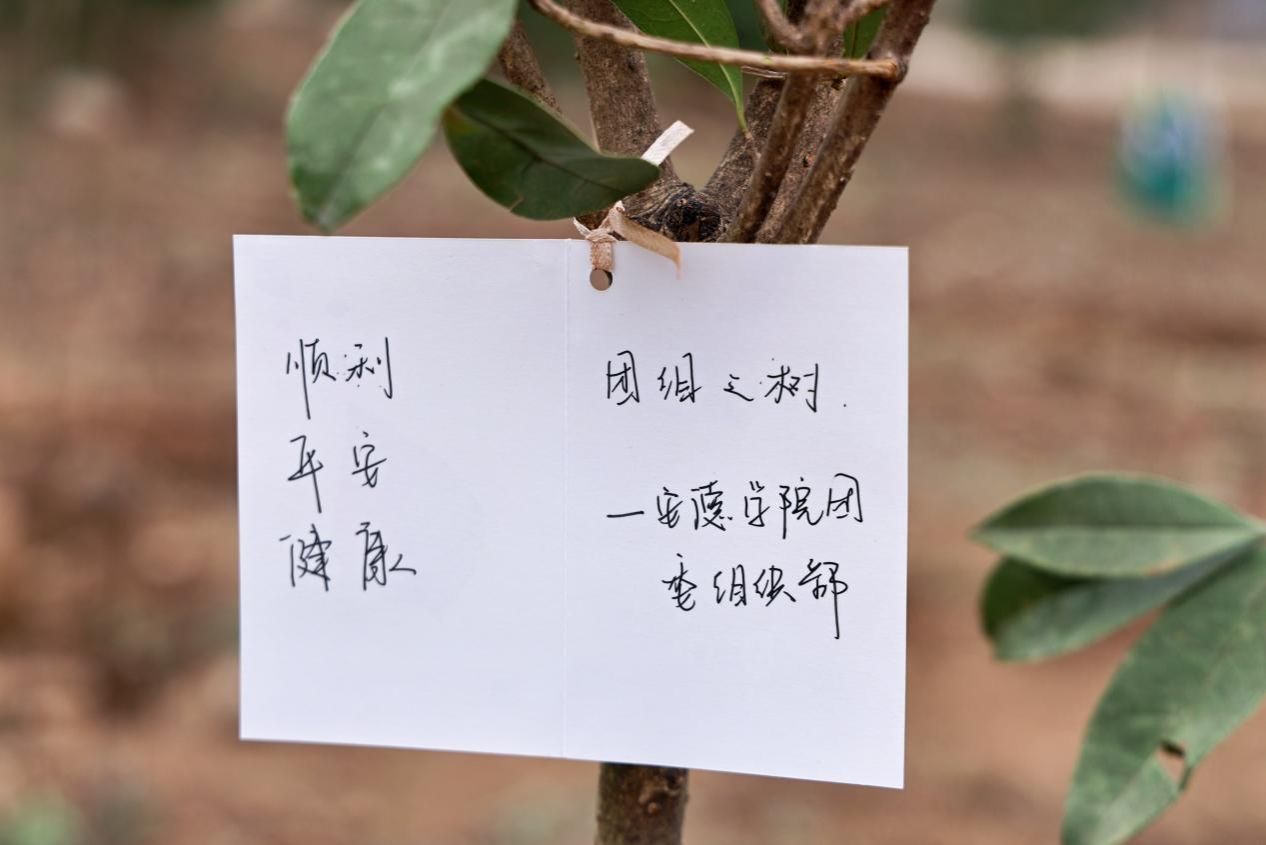 顺利
平安
健康
团组之树.
—安德学院团
委组织部